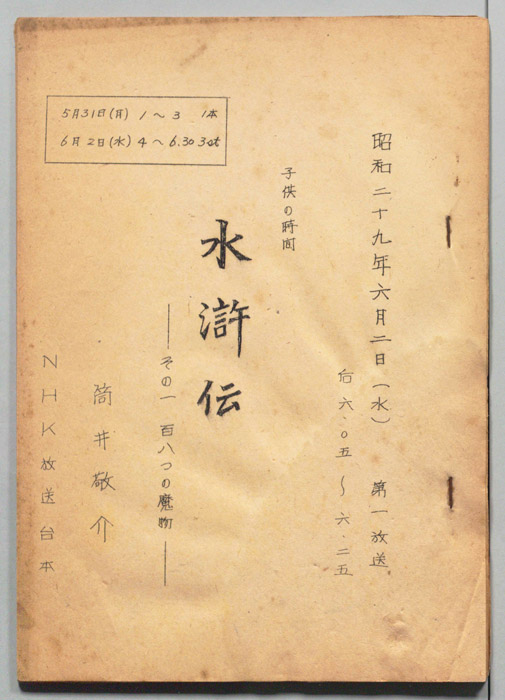 5月31日(月) 1〜3 1本
6月2日(水) 4〜6.30 3st
昭和二十九年六月二日(水) 第一放送
后六.〇五〜六.二五
子供の時間
水滸伝
――その一 百八つの魔物――
筒井敬介
NHK放送台本